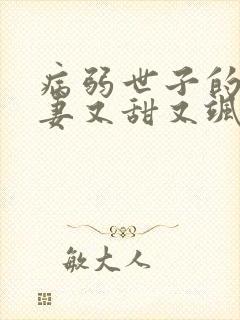 病弱世子的
妻又甜又飒
敏大人